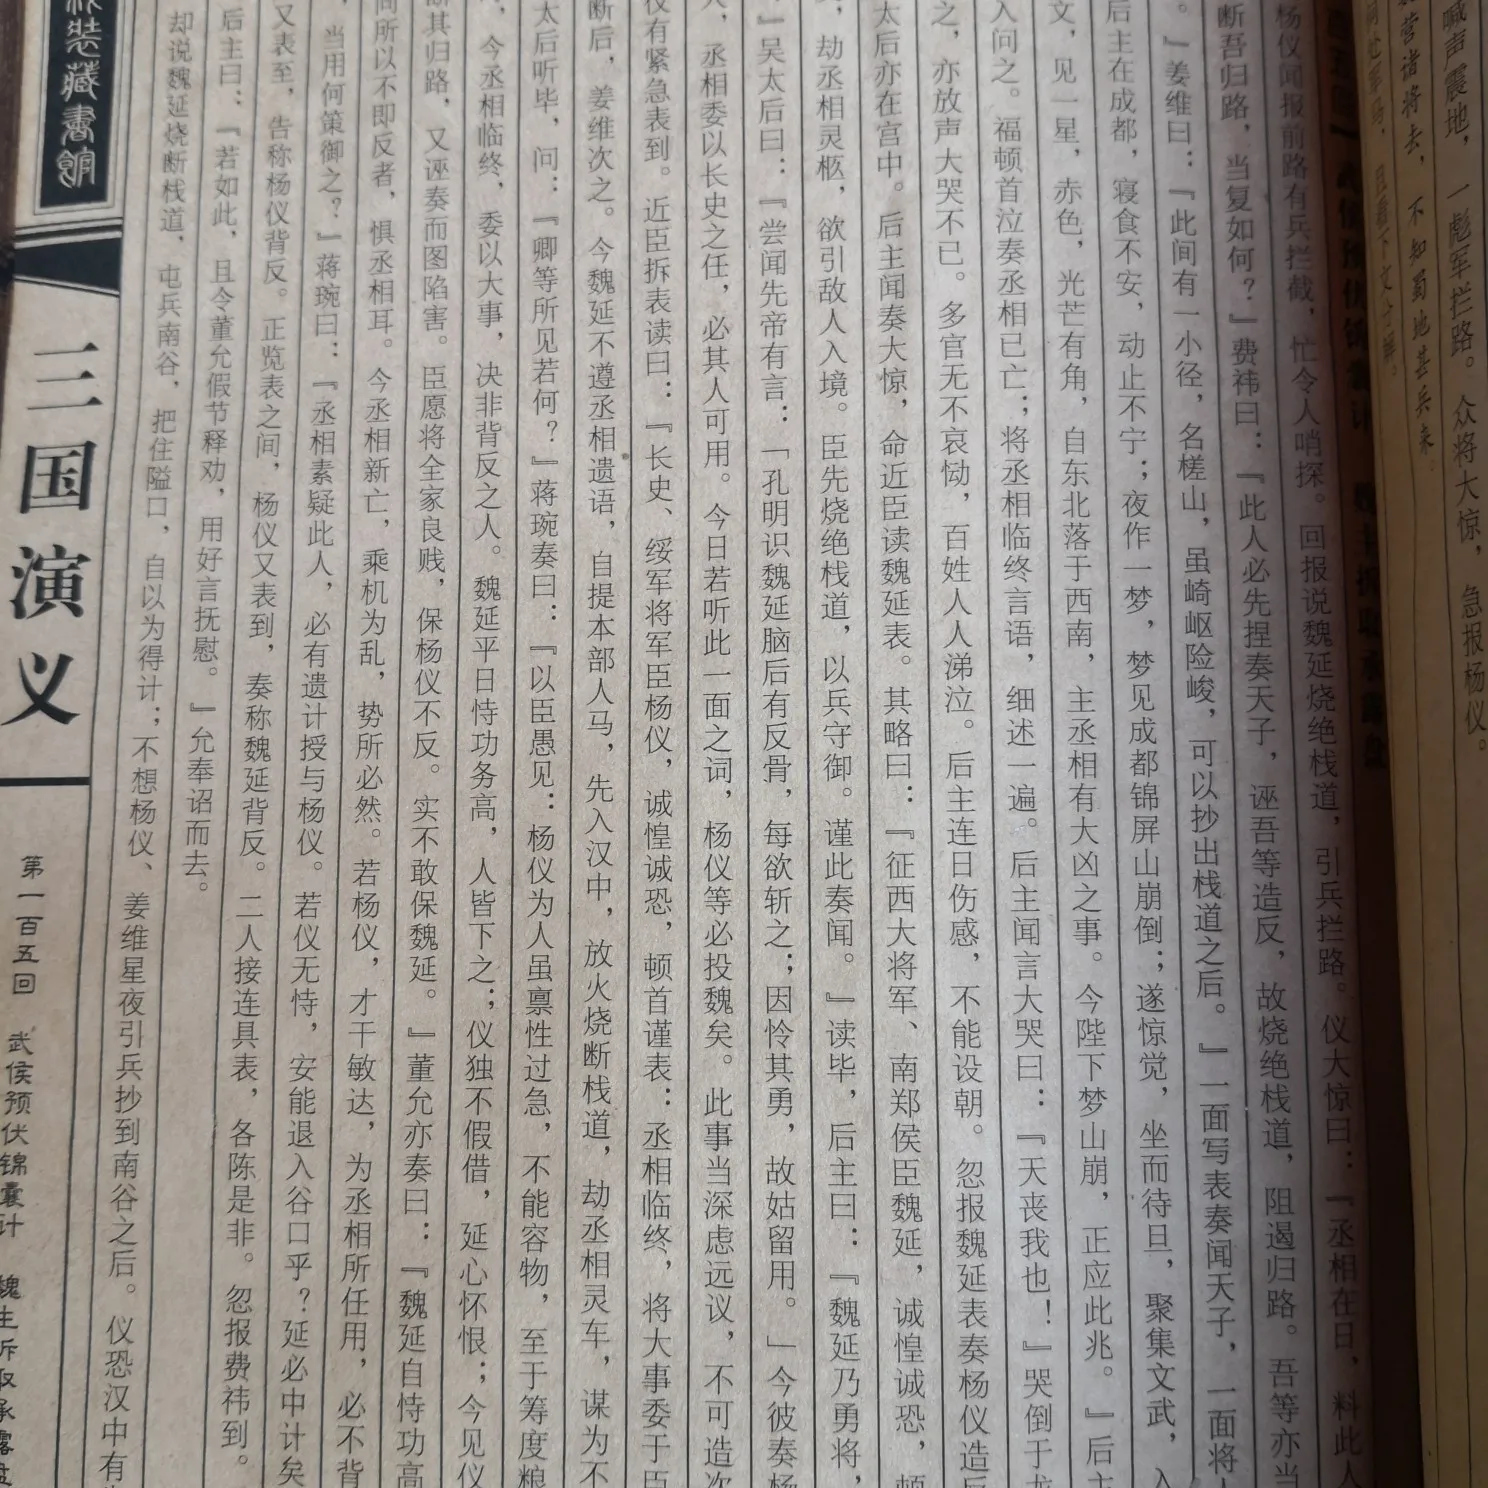 喊声震地，一彪军拦路。众将大惊，急报杨仪。
营诸将去，不知蜀地甚兵来
且看下文分解。
杨仪闻报前路有兵拦截，忙令人哨探。回报说魏延烧绝栈道，引兵拦路。仪大惊曰：『丞相在日，料此人
断吾归路，当复如何？』费祎曰：『此人必先捏奏天子，诬吾等造反，故烧绝栈道，阻遏归路。吾等亦当
。』姜维曰：『此间有一小径，名槎山，虽崎岖险峻，可以抄出栈道之后。』一面写表奏闻天子，一面将
后主在成都，寝食不安，动止不宁；夜作一梦，梦见成都锦屏山崩倒；遂惊觉，坐而待旦，聚集文武，入
文，见一星，赤色，光芒有角，自东北落于西南，主丞相有大凶之事。今陛下梦山崩，正应此兆。』后主
入问之。福顿首泣奏丞相已亡；将丞相临终言语，细述一遍。后主闻言大哭曰：『天丧我也！』哭倒于龙
之，亦放声大哭不已。多官无不哀恸，百姓人人涕泣。后主连日伤感，不能设朝。忽报魏延表奏杨仪造反
太后亦在宫中。后主闻奏大惊，命近臣读魏延表。其略曰：『征西大将军、南郑侯臣魏延，诚惶诚恐，顿
，劫丞相灵柩，欲引敌人入境。臣先烧绝栈道，以兵守御。谨此奏闻。』读毕，后主曰：『魏延乃勇将，
』吴太后曰：『尝闻先帝有言：「孔明识魏延脑后有反骨，每欲斩之；因怜其勇，故姑留用。」今彼奏杨
人，丞相委以长史之任，必其人可用。今日若听此一面之词，杨仪等必投魏矣。此事当深虑远议，不可造次
仪有紧急表到。近臣拆表读曰：『长史、绥军将军臣杨仪，诚惶诚恐，顿首谨表：丞相临终，将大事委于臣
断后，姜维次之。今魏延不遵丞相遗语，自提本部人马，先入汉中，放火烧断栈道，劫丞相灵车，谋为不
太后听毕，问：『卿等所见若何？』蒋琬奏曰：『以臣愚见：杨仪为人虽禀性过急，不能容物，至于筹度粮
，今丞相临终，委以大事，决非背反之人。魏延平日恃功务高，人皆下之；仪独不假借，延心怀恨；今见仪
断其归路，又诬奏而图陷害。臣愿将全家良贱，保杨仪不反。实不敢保魏延。』董允亦奏曰：『魏延自恃功高
向所以不即反者，惧丞相耳。今丞相新亡，乘机为乱，势所必然。若杨仪，才干敏达，为丞相所任用，必不背
，当用何策御之？』蒋琬曰：『丞相素疑此人，必有遗计授与杨仪。若仪无恃，安能退入谷口乎？延必中计矣
又表至，告称杨仪背反。正览表之间，杨仪又表到，奏称魏延背反。二人接连具表，各陈是非。忽报费祎到。
后主曰：『若如此，且令董允假节释劝，用好言抚慰。』允奉诏而去。
却说魏延烧断栈道，屯兵南谷，把住隘口，自以为得计；不想杨仪、姜维星夜引兵抄到南谷之后。仪恐汉中有
装藏書館
三国演义
第一百五回 武侯预伏锦囊计 魏主拆取承露盘